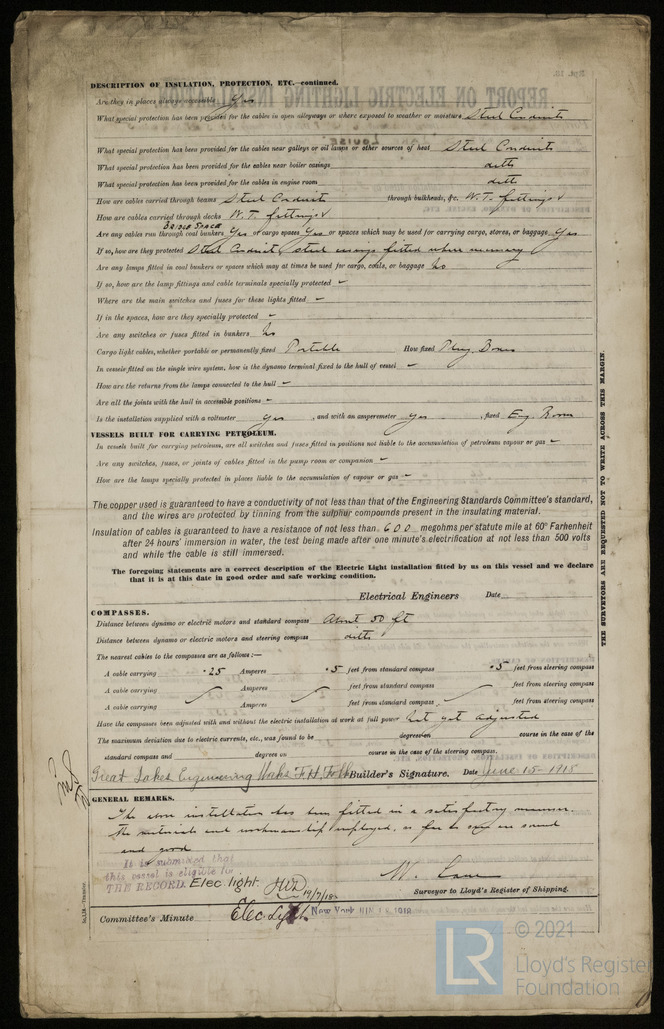 DESCRIPTION OF INSULATION, PROTECTION, ETC.—continued.
Are they in places always accessible Yes
What special protection has been provided for the cables in open alleyways or where exposed to weather or moisture Steel Conduits
What special protection has been provided for the cables near galleys or oil lamps or other sources of heat Steel Conduits
What special protection has been provided for the cables near boiler casings ditto
What special protection has been provided for the cables in engine room ditto
How are cables carried through beams Steel Conduits through bulkheads, &c. W.T. fittings
How are cables carried through decks W.T. fittings
BRIDGE SPACE
Are any cables run through coal bunkers Yes or cargo spaces Yes or spaces which may be used for carrying cargo, stores, or baggage Yes
If so, how are they protected Steel Conduit, steel casings fitted where necessary
Are any lamps fitted in coal bunkers or spaces which may at times be used for cargo, coals, or baggage No
If so, how are the lamp fittings and cable terminals specially protected –
Where are the main switches and fuses for these lights fitted –
If in the spaces, how are they specially protected –
Are any switches or fuses fitted in bunkers No
Cargo light cables, whether portable or permanently fixed Portable How fixed Plug Boxes
In vessels fitted on the single wire system, how is the dynamo terminal fixed to the hull of vessel –
How are the returns from the lamps connected to the hull –
Are all the joints with the hull in accessible positions –
Is the installation supplied with a voltmeter Yes , and with an amperemeter Yes , fixed Eng. Room
VESSELS BUILT FOR CARRYING PETROLEUM.
In vessels built for carrying petroleum, are all switches and fuses fitted in positions not liable to the accumulation of petroleum vapour or gas –
Are any switches, fuses, or joints of cables fitted in the pump room or companion –
How are the lamps specially protected in places liable to the accumulation of vapour or gas –
The copper used is guaranteed to have a conductivity of not less than that of the Engineering Standards Committee's standard,
and the wires are protected by tinning from the sulphur compounds present in the insulating material.
Insulation of cables is guaranteed to have a resistance of not less than 600 megohms per statute mile at 60° Farhenheit
after 24 hours' immersion in water, the test being made after one minute's electrification at not less than 500 volts
and while the cable is still immersed.
The foregoing statements are a correct description of the Electric Light installation fitted by us on this vessel and we declare
that it is at this date in good order and safe working condition.
Electrical Engineers Date
COMPASSES.
Distance between dynamo or electric motors and standard compass About 50 ft
Distance between dynamo or electric motors and steering compass ditto
The nearest cables to the compasses are as follows:—
A cable carrying .25 Amperes .5 feet from standard compass .5 feet from steering compass
A cable carrying Amperes feet from standard compass feet from steering compass
A cable carrying Amperes feet from standard compass feet from steering compass
Have the compasses been adjusted with and without the electric installation at work at full power Not yet adjusted
The maximum deviation due to electric currents, etc., was found to be degrees on course in the case of the
standard compass and degrees on course in the case of the steering compass.
Great Lakes Engineering Works Builder's Signature. Date June 15 - 1918
GENERAL REMARKS.
The above installation has been fitted in a satisfactory manner.
the materials and workmanship employed, as far as seen are sound
and good
It is submitted that
this vessel is eligible for
THE RECORD. Elec. light. 19/7/18
Surveyor to Lloyd's Register of Shipping.
Committee's Minute Elec. Light New York 1918
THE SURVEYORS ARE REQUESTED NOT TO WRITE ACROSS THIS MARGIN.
LR
© 2021
Lloyd's Register
Foundation